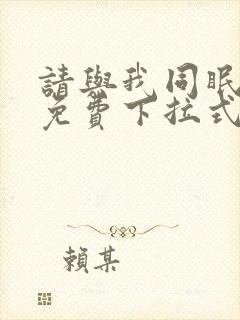 請與我同眠
免費下拉式
賴某